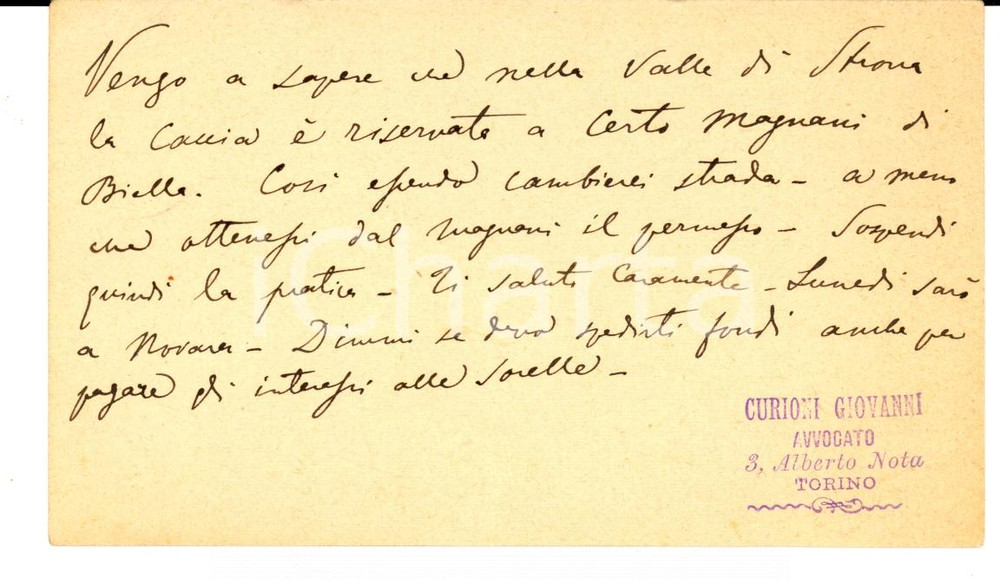 Vengo a sapere che nella Valle di Strona
la Caccia è riservata a Certo Magnani di
Biella. Così essendo cambierei strada - a meno
che ottenessi dal Magnani il permesso - Sospendi
quindi la pratica - Ti saluto Caramente - Lunedì sarò
a Novara - Dimmi se devo spedirti fondi anche per
pagare gli interessi alle Sorelle -
CURIONI GIOVANNI
AVVOCATO
3, Alberto Nota
TORINO
iCharta